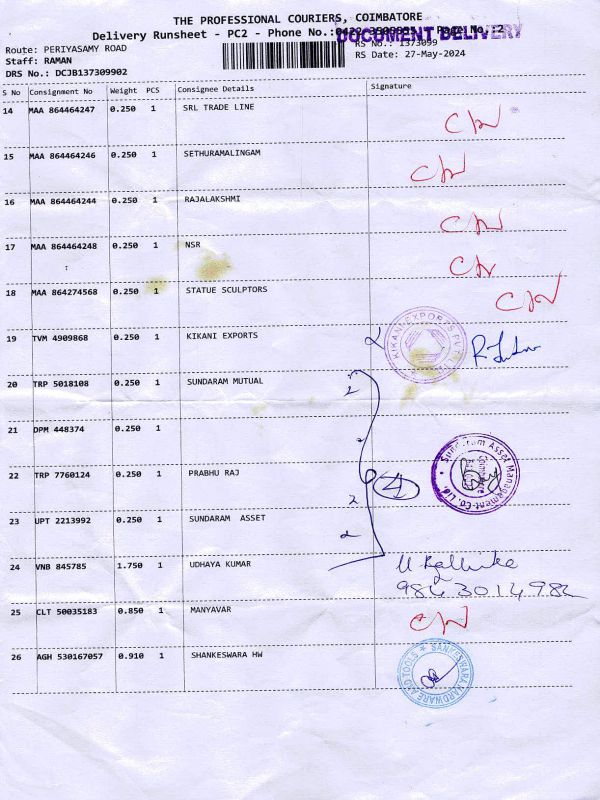 THE PROFESSIONAL COURIERS, COIMBATORE
Delivery Runsheet - PC2 - Phone No.: Page No.:2
DOCUMENT DELIVERY
Route: PERIYASAMY ROAD
RS No.: 1373099
Staff: RAMAN
RS Date: 27-May-2024
DRS No.: DCJB137309902
S No Consignment No Weight PCS Consignee Details Signature
14 MAA 864464247 0.250 1 SRL TRADE LINE
15 MAA 864464246 0.250 1 SETHURAMALINGAM
16 MAA 864464244 0.250 1 RAJALAKSHMI
17 MAA 864464248 0.250 1 NSR
18 MAA 864274568 0.250 1 STATUE SCULPTORS
19 TVM 4909868 0.250 1 KIKANI EXPORTS
KIKANI EXPORTS PVT
20 TRP 5018108 0.250 1 SUNDARAM MUTUAL
21 DPM 448374 0.250 1
22 TRP 7760124 0.250 1 PRABHU RAJ
4
Sundaram Asset Management Co. Ltd.
23 UPT 2213992 0.250 1 SUNDARAM ASSET
24 VNB 845785 1.750 1 UDHAYA KUMAR
25 CLT 50035183 0.850 1 MANYAVAR
26 AGH 530167057 0.910 1 SHANKESWARA HW
SANKESWARA HARDWARE AND TOOLS